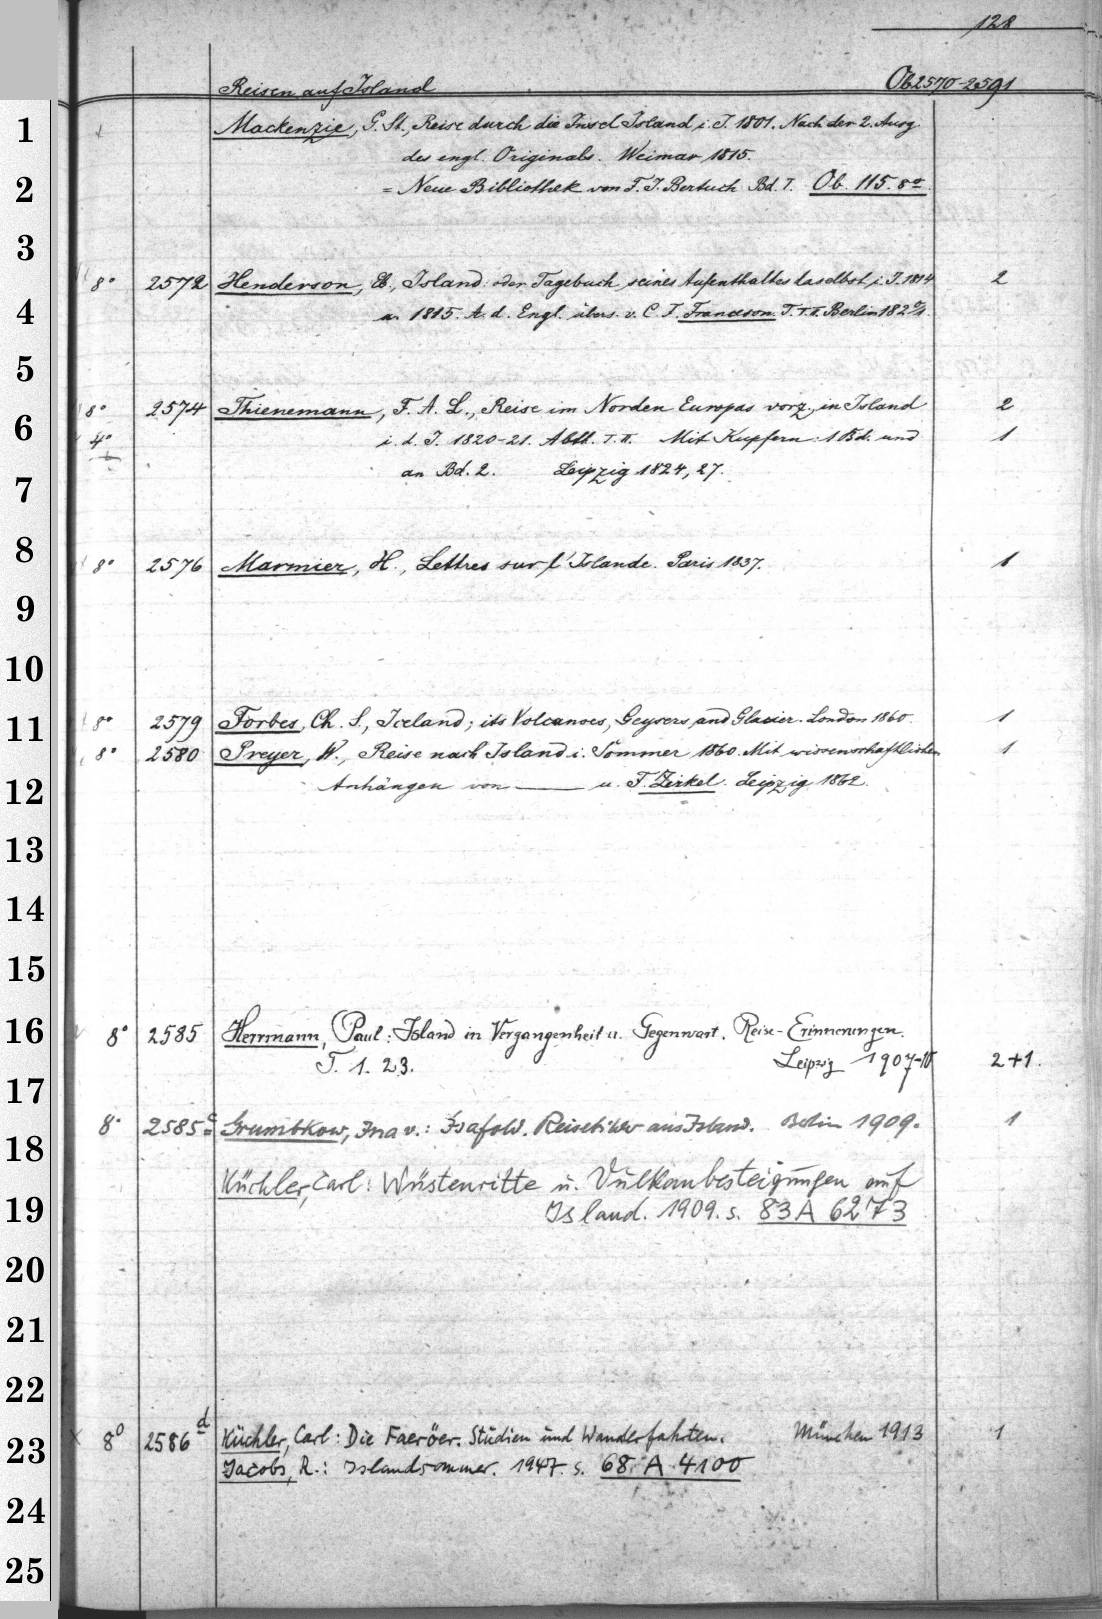 128
Reisen auf Island Ob 2570-2591
1 Mackenzie, G. St., Reise durch die Insel Island i. J. 1801. Nach der 2. Ausg.
des engl. Originals. Weimar 1815.
2 = Neue Bibliothek von F. J. Bertuch Bd. I. Ob. 115. 8º
3
8º 2572 Henderson, Eb., Island: oder Tagebuch seines Aufenthaltes daselbst i. J. 1814 2
4 u. 1815. A. d. Engl. übers. v. C. F. Franceson. T. I. II. Berlin 1820/1.
5
8º 2574 Thienemann, F. A. L., Reise im Norden Europas vorz. in Island 2
6 4º i. d. J. 1820-21. Abth. I. II. Mit Kupfern. 1 Bd. und 1
7 an Bd. 2. Leipzig 1824, 27.
8 8º 2576 Marmier, H., Lettres sur l'Islande. Paris 1837. 1
9
10
11 8º 2579 Forbes, Ch. S., Iceland; its Volcanoes, Geysers, and Glacier. London 1860. 1
8º 2580 Preyer, W., Reise nach Island i. Sommer 1860. Mit wissenschaftlichen 1
12 Anhängen von — u. F. Zirkel. Leipzig 1862.
13
14
15
16 8º 2585 Herrmann, Paul: Island in Vergangenheit u. Gegenwart. Reise-Erinnerungen.
T. 1. 2 3. Leipzig 1907-10 2+1.
17
8º 2585c Grumbkow, Ina v.: Isafold. Reisebilder aus Island. Berlin 1909. 1
18
Küchler, Carl: Wüstenritte u. Vulkanbesteigungen auf
19 Island. 1909. s. 83 A 6273
20
21
22
23 8º 2586d Küchler, Carl: Die Faeröer. Studien und Wanderfahrten. München 1913 1
Jacobs, R.: Islandsommer. 1947. s. 68 A 4100
24
25